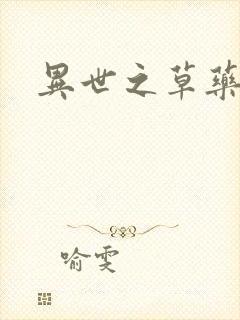 異世之草藥
喻雯